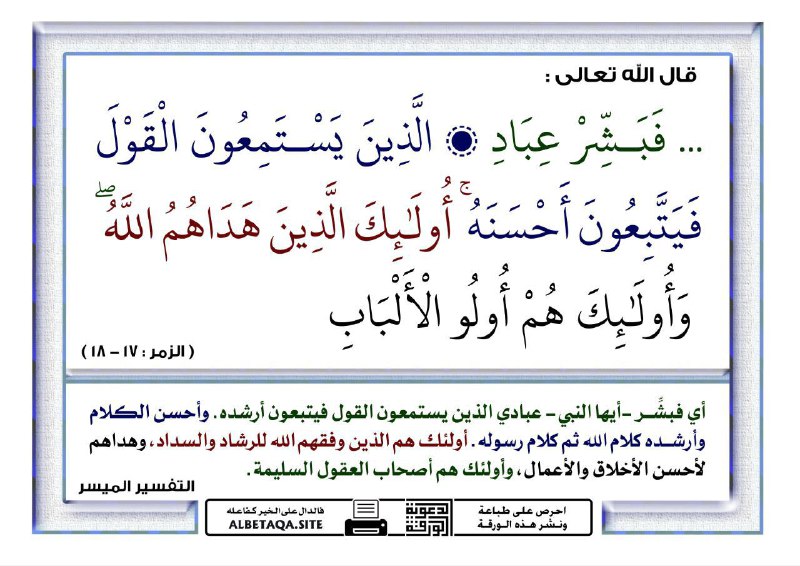 قال الله تعالى :
... فَبَـشِّرْ عِبَادِ ۞ الَّذِينَ يَسْـتَمِعُونَ الْقَوْلَ
فَيَتَّبِعُونَ أَحْسَنَهُ ۚ أُولَـٰئِكَ الَّذِينَ هَدَاهُمُ اللَّهُ ۖ
وَأُولَـٰئِكَ هُمْ أُولُو الْأَلْبَابِ
( الزمر : ١٧ - ١٨ )
أي فبشِّـر -أيها النبي- عبادي الذين يستمعون القول فيتبعون أرشده . وأحسن الكلام
وأرشـده كلام الله ثم كلام رسوله . أولئك هم الذين وفقهم الله للرشاد والسداد ، وهداهم
لأحسن الأخلاق والأعمال ، وأولئك هم أصحاب العقول السليمة .
التفسير الميسر
احرص على طباعة
ونشر هذه الورقة
الورقة
الدعوية
فالدال على الخير كفاعله
ALBETAQA.SITE